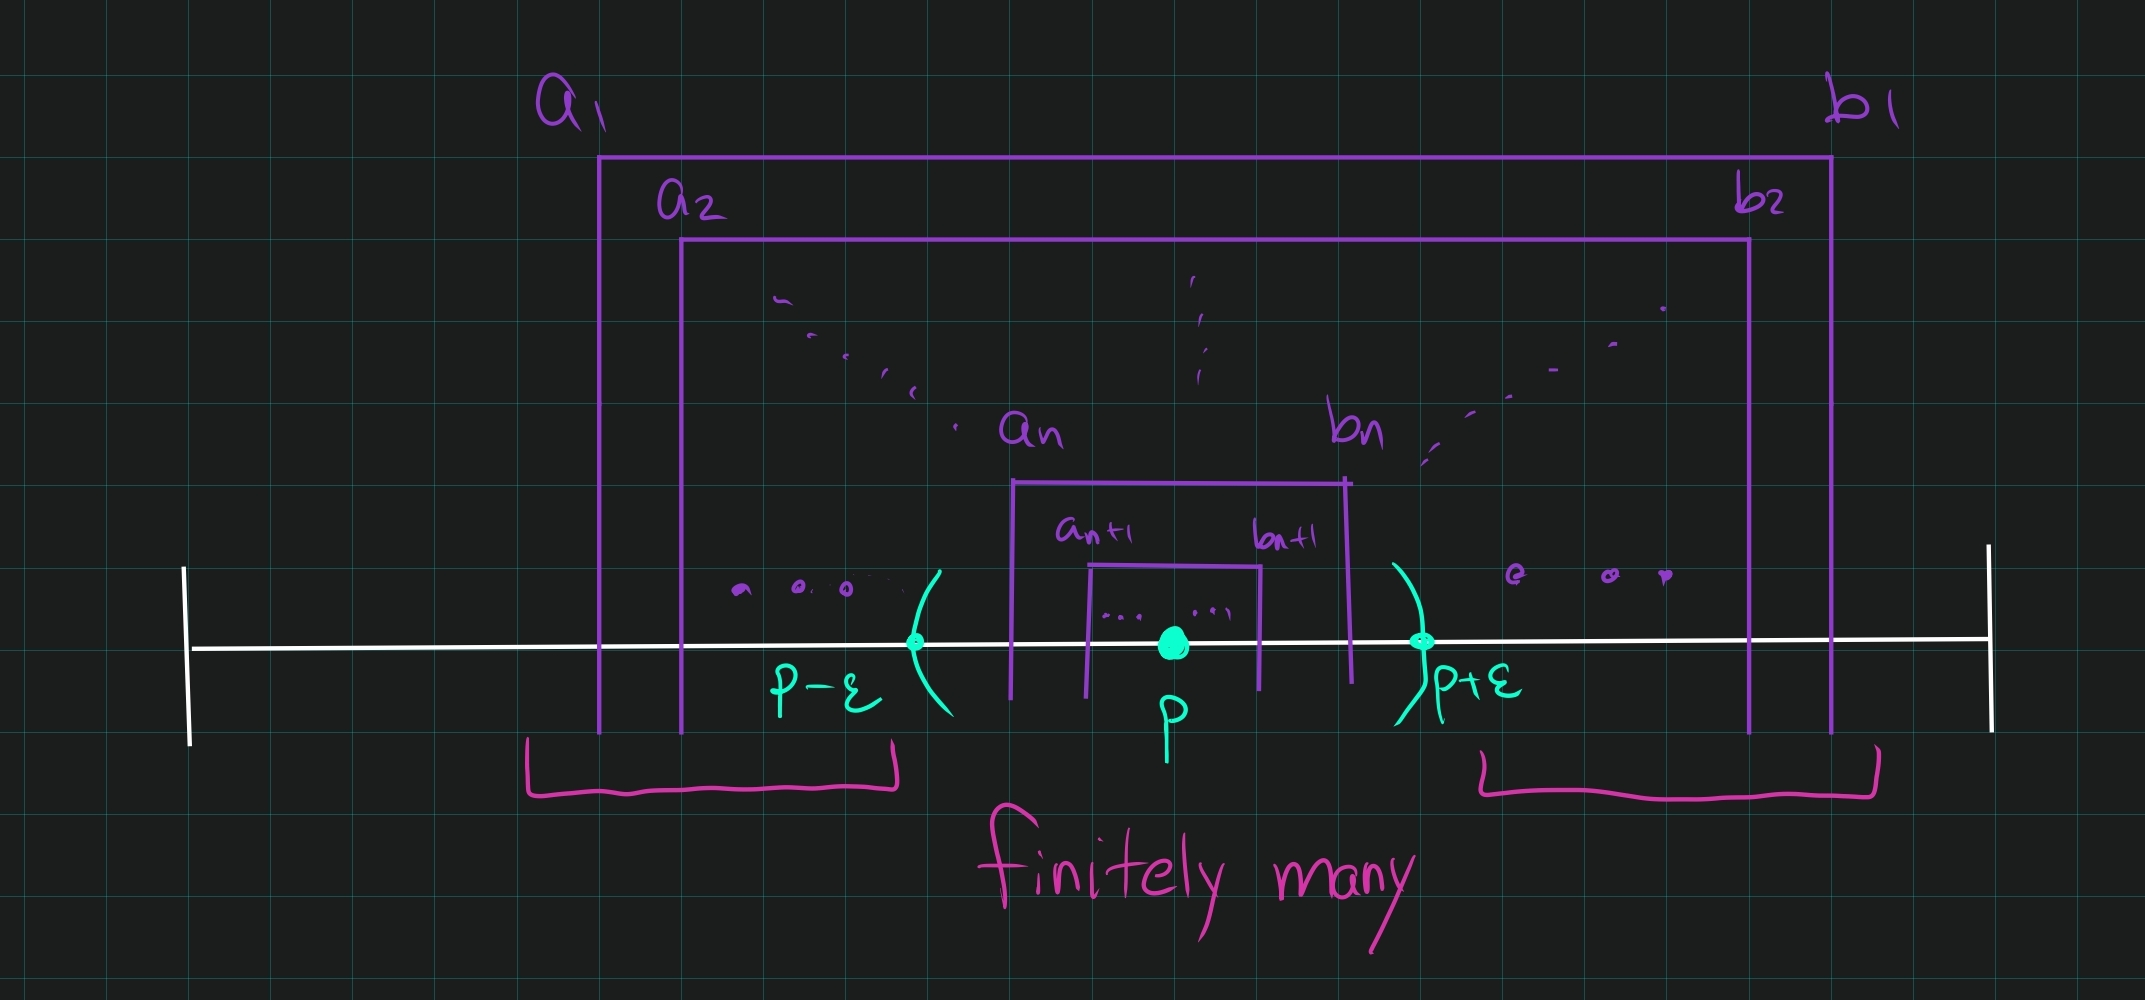 a1 b1
a2 b2
an bn
an+1 bn+1
... ...
p-ε p p+ε
finitely many